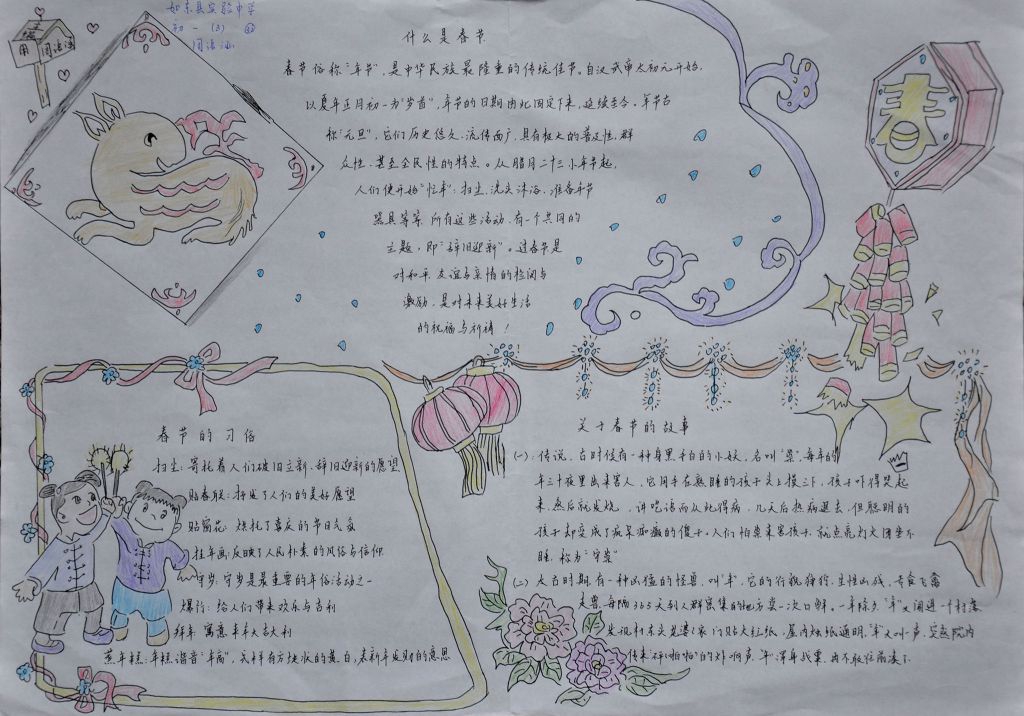 如东县实验中学
初一(3)
周语涵
周语涵
春
什么是春节
春节俗称"年节",是中华民族最隆重的传统佳节。自汉武帝太初元开始,
以夏年正月初一为"岁首",年节的日期由此固定下来,延续至今。年节古
称"元旦"。它们历史悠久、流传面广,具有极大的普及性、群
众性、甚至全民性的特点。从腊月二十三小年节起,
人们便开始"忙年":扫尘、洗头沐浴、准备年节
器具等等。所有这些活动,有一个共同的
主题,即"辞旧迎新"。过春节是
对和平、友谊与亲情的检阅与
激励,是对未来美好生活
的祝福与祈祷!
春节的习俗
扫尘:寄托着人们破旧立新、辞旧迎新的愿望
贴春联:抒发了人们的美好愿望
贴窗花:烘托了喜庆的节日气氛
挂年画:反映了人民朴素的风俗与信仰
守岁:守岁是最重要的年俗活动之一
爆竹:给人们带来欢乐与吉利
拜年:寓意丰年大吉大利
蒸年糕:年糕谐音"年高",式样有方块状的黄、白,表新年发财的意思
关于春节的故事
(一):传说,古时候有一种身黑手白的小妖,名叫"祟",每年的
年三十夜里出来害人,它用手在熟睡的孩子头上摸三下,孩子吓得哭起
来,然后就发烧、讲呓语而从此得病,几天后热病退去,但聪明的
孩子却变成了疯呆痴癫的傻子。人们怕祟来害孩子,就点亮灯火团坐不
睡,称为"守祟"
(二):太古时期,有一种凶猛的怪兽,叫"年",它的行貌狰狞,生性凶残,专食飞禽
走兽,每隔365天到人群密集的地方尝一次口鲜。一年除夕,"年"又闯进一个村落
发现村东头老婆婆家门贴大红纸,屋内烛纸通明,"年"大叫一声,突然院内
传来"砰啪啪"的炸响声,"年"浑身战栗,再不敢往前凑了